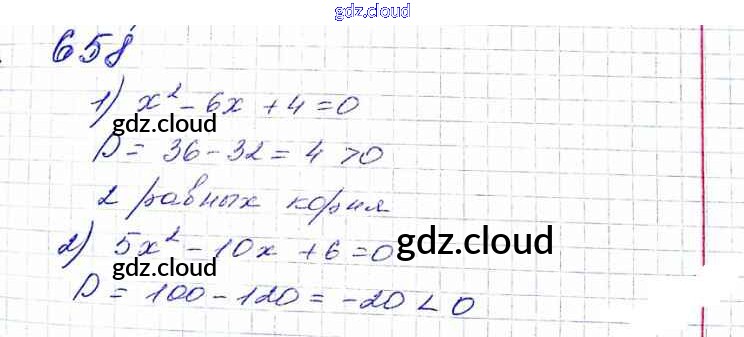 gdz.cloud
gdz.cloud
658
1) x² - 6x + 4 = 0
gdz.cloud
D = 36 - 32 = 4 > 0
2 равных корня
2) 5x² - 10x + 6 = 0 gdz.cloud
gdz.cloud
D = 100 - 120 = -20 < 0